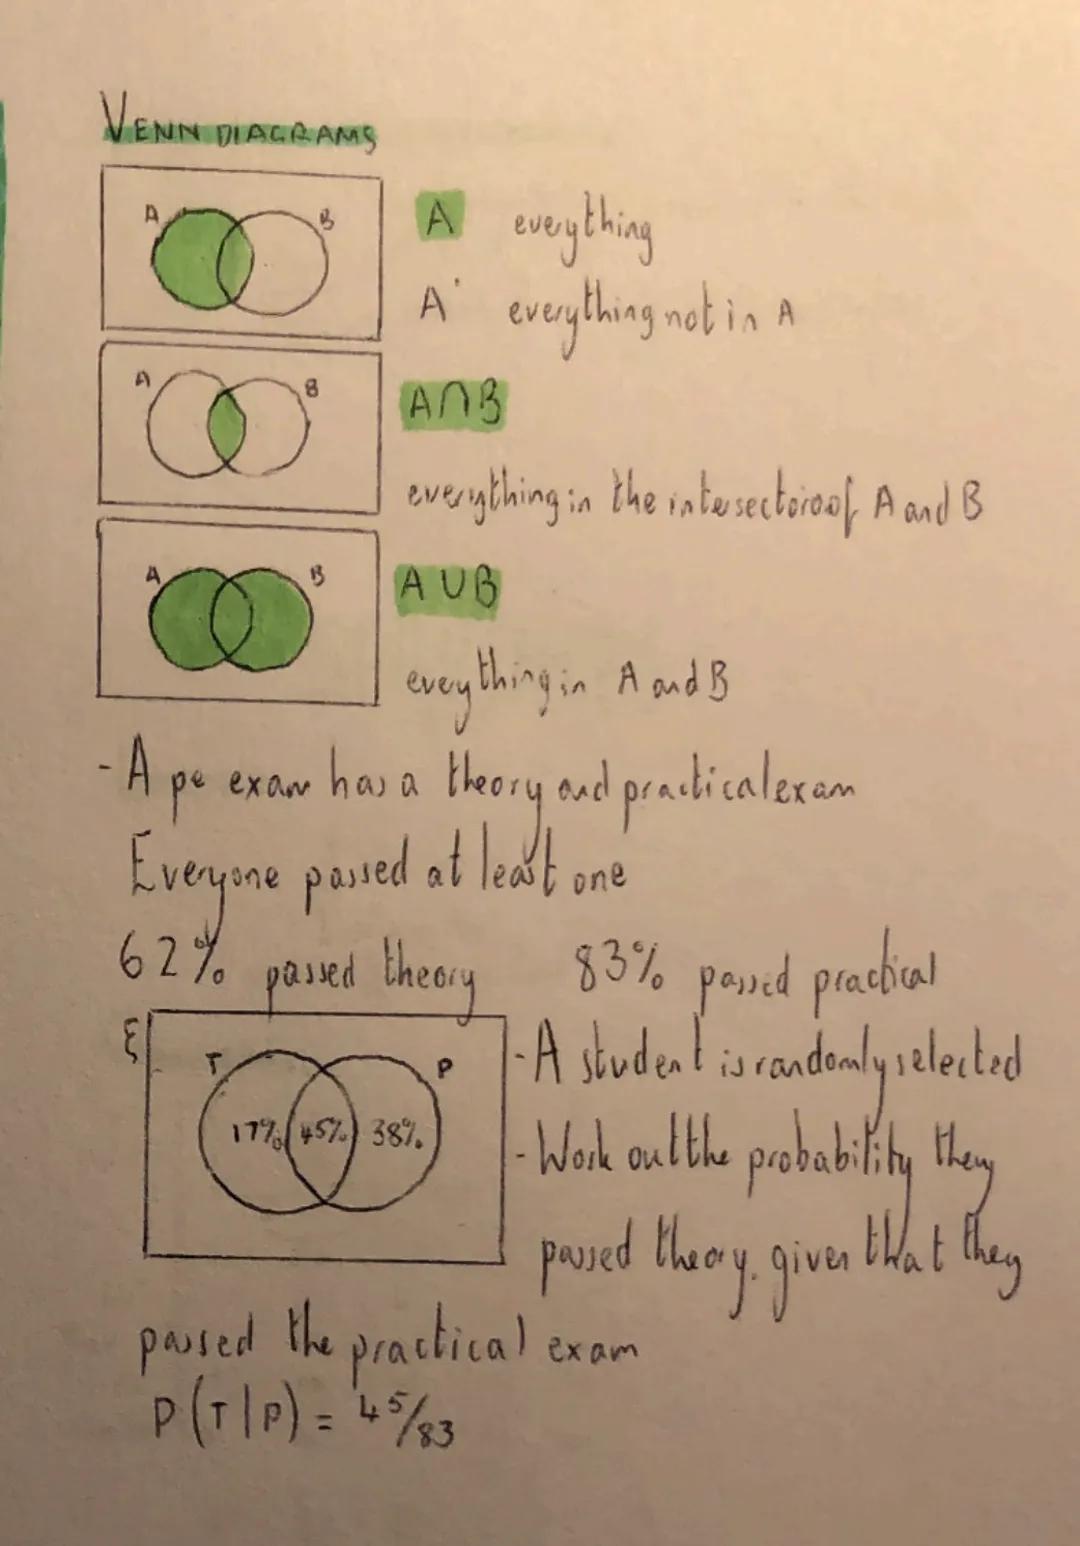 VENN DIAGRAMS
A B
A everything
A' everything not in A
A B
A∩B
everything in the intersectoroof A and B
A B
A∪B
everything in A and B
- A pe exam has a theory and practical exam
Everyone passed at least one
62% passed theory 83% passed practical
ξ T P
17% 45% 38%
- A student is randomly selected
- Work out the probability they
passed theory. given that they
passed the practical exam
P(T|P) = 45/83